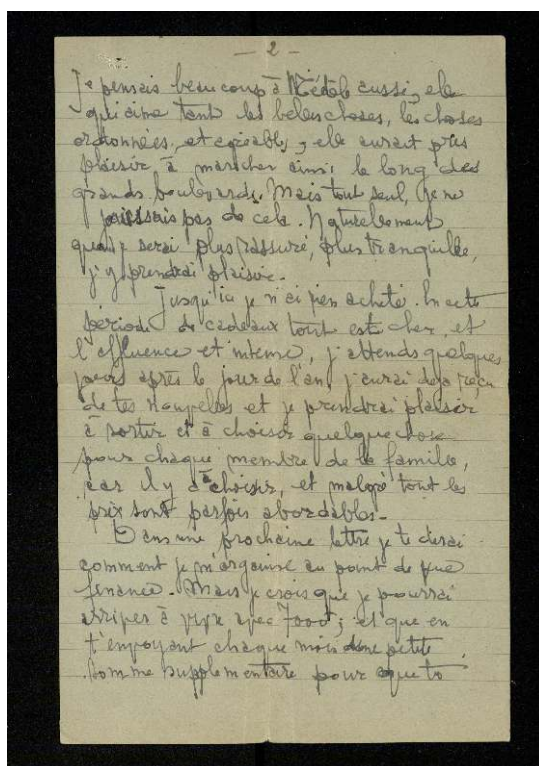 — 2 —
Je pensais beaucoup à aussi, elle
qui aime tant les belles choses, les choses
ordonnées, et agréables, elle aurait pris
plaisir à marcher ainsi le long des
grands boulevards. Mais tout seul, je ne
jouissais pas de cela. Naturellement
quand je serai plus rassuré, plus tranquille,
j'y prendrai plaisir.
Jusqu'ici je n'ai rien acheté. En cette
période de cadeaux tout est cher, et
l'affluence et intense, j'attends quelques
jours après le jour de l'an, j'aurai déjà reçu
de tes nouvelles et je prendrai plaisir
à sortir et à choisir quelque chose
pour chaque membre de la famille,
car il y a à choisir, et malgré tout les
prix sont parfois abordables.
Dans une prochaine lettre je te dirai
comment je m'organise au point de vue
finance. Mais je crois que je pourrai
arriver à vivre avec ; et que en
t'envoyant chaque mois une petite
somme supplémentaire pour que tu